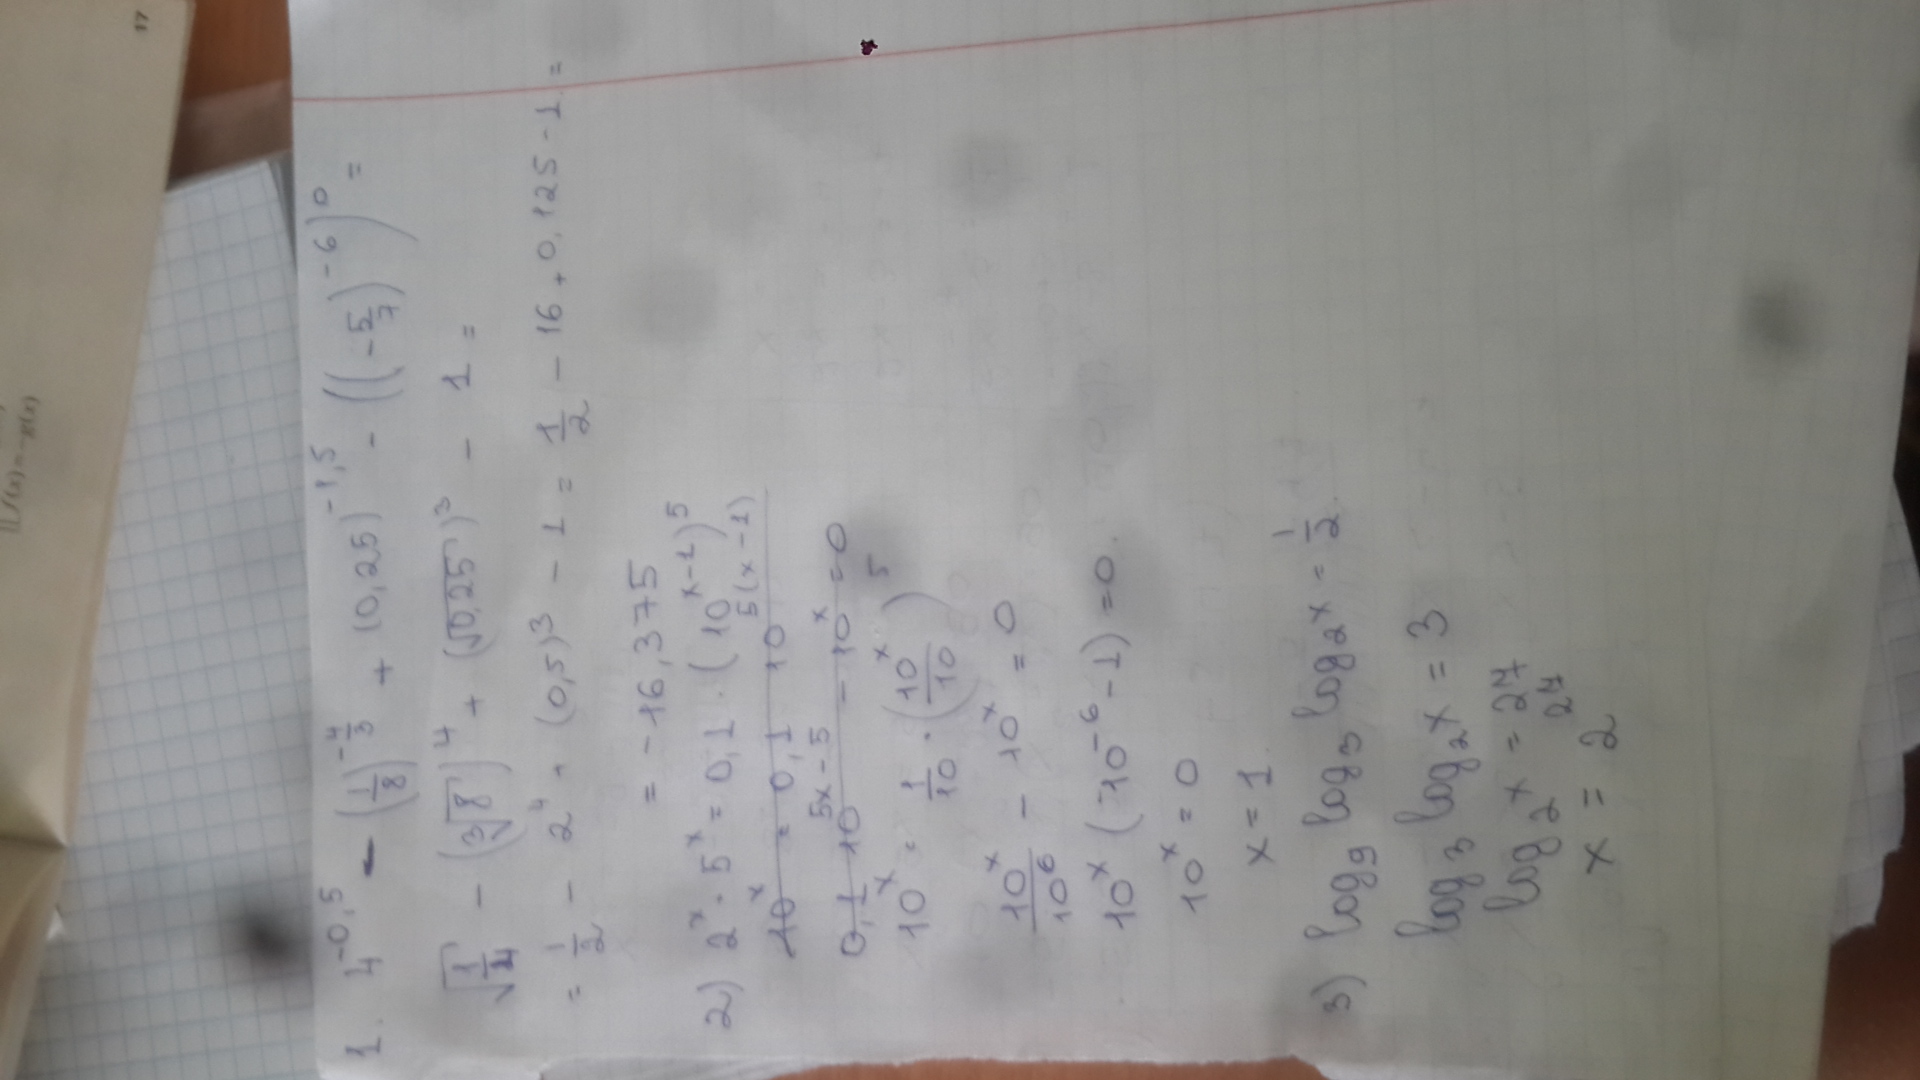 1. 4^{-0,5} - (1/8)^{-4/3} + (0,25)^{-1,5} - ((-5/7)^{-6})^0 =
√(1/4) - (³√8)^4 + (√0,25)^3 - 1 =
= 1/2 - 2^4 + (0,5)^3 - 1 = 1/2 - 16 + 0,125 - 1 =
= -16,375
2) 2^x · 5^x = 0,1 · (10^{x-1})^5
10^x = 0,1 10^{5(x-1)}
0,1 10^{5x-5} - 10^x = 0
10^x = 1/10 · (10^x/10)^5
10^x/10^6 - 10^x = 0
10^x (10^{-6} - 1) = 0.
10^x = 0
x = 1
3) log₉ log₃ log₂x = 1/2.
log₃ log₂x = 3
log₂x = 27
x = 2^{27}
17
f(x) = -g(x)